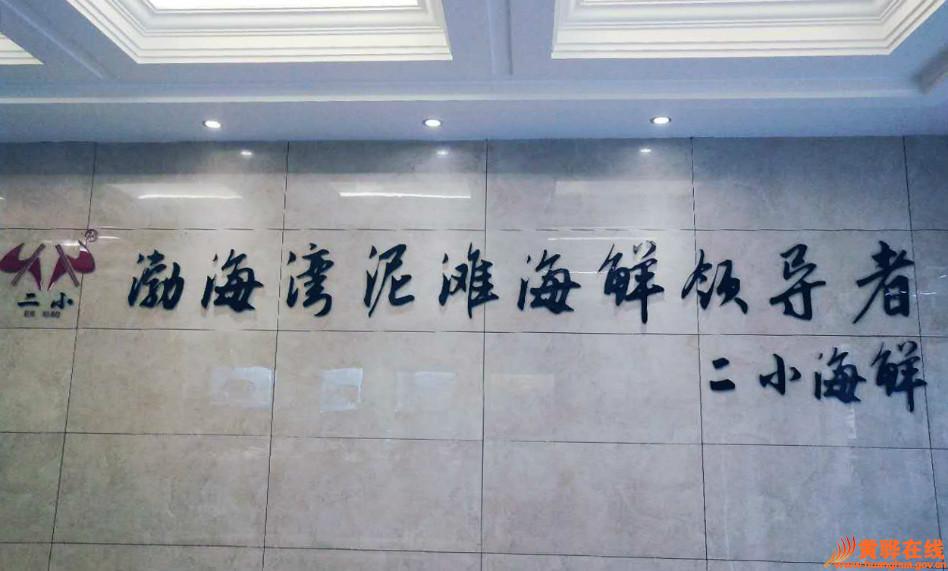 渤海湾泥滩海鲜领导者
二小海鲜
®
二小
ER XIAO
黄骅在线
www.huanghua.gov.cn